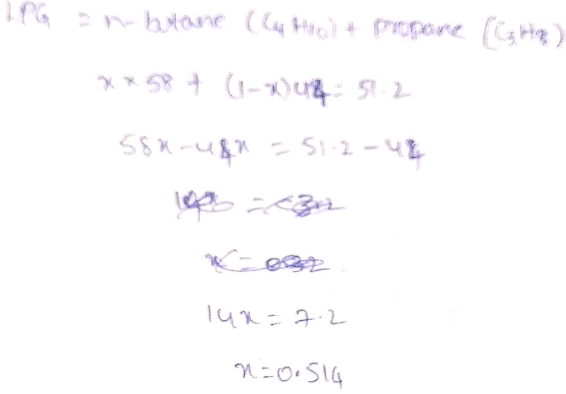 LPG = n-butane (C4H10) + propane (C3H8)
x × 58 + (1-x)44 = 51.2
58x - 44x = 51.2 - 44
14x = 7.2
x = 0.514